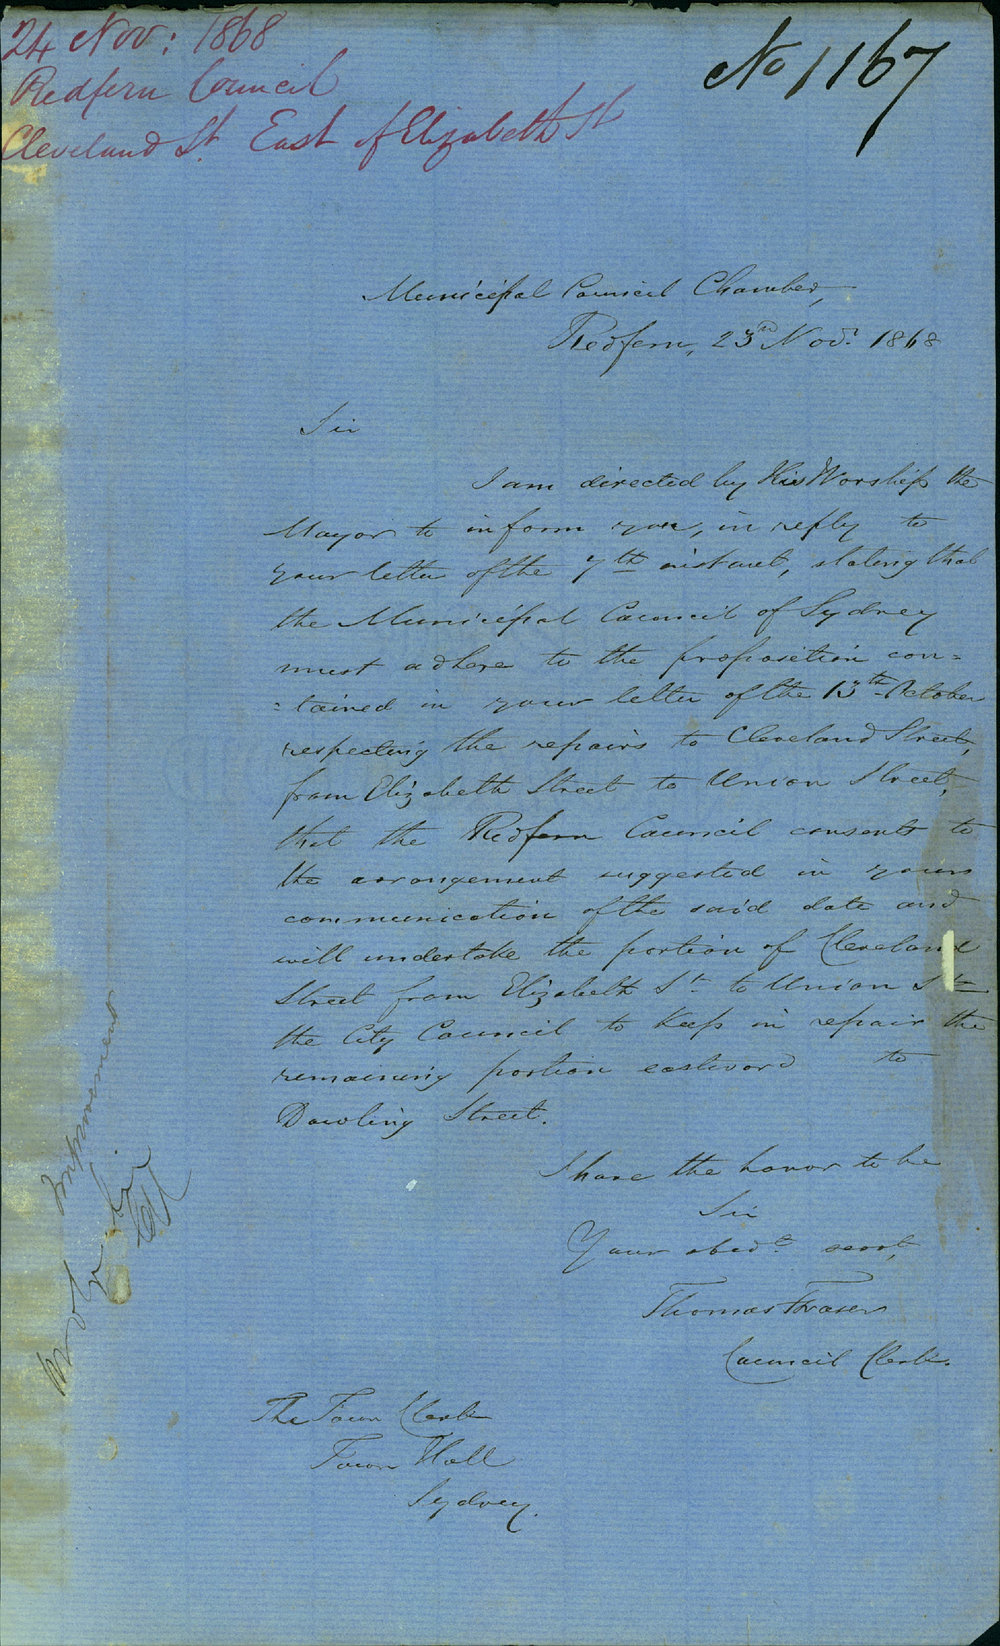 24 Nov: 1868
Redfern Council
Cleveland St. East of Elizabeth St
No 1167
Municipal Council Chamber,
Redfern, 23rd Novr. 1868
Sir
I am directed by His Worship the
Mayor to inform you, in reply to
your letter of the 7th instant, stating that
the Municipal Council of Sydney
must adhere to the proposition con=
=tained in your letter of the 13th October
respecting the repairs to Cleveland Street,
from Elizabeth Street to Union Street,
that the Redfern Council consents to
the arrangement suggested in your
communication of the said date and
will undertake the portion of Cleveland
Street from Elizabeth St. to Union St.
the City Council to keep in repair the
remaining portion eastward to
Dowling Street.
I have the honor to be
Sir
Your obedt. servt,
Thomas Fraser
Council Clerk.
The Town Clerk
Town Hall
Sydney.
Improvement